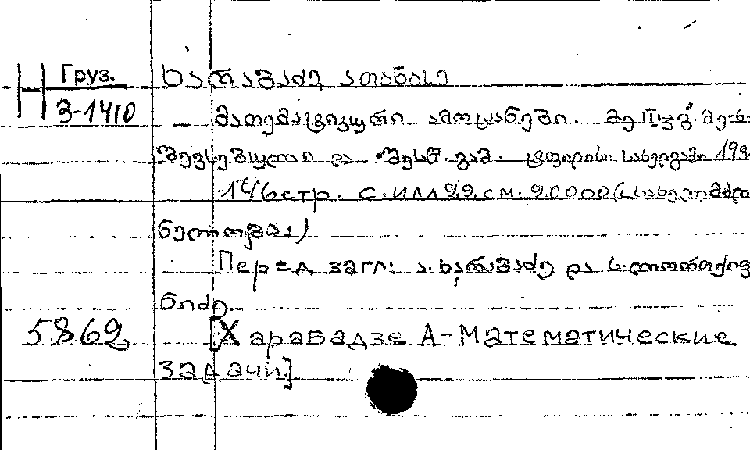 Груз. ხარაბაძე ათანასე
3-1410 — მათემატიკური ამოცანები. მე
შევსებული და შესწ. გამ. ტფილისი. სახელგამი 193
146 стр. с илл 22 см. 20000
ნელოვნება)
Перед загл: ა. ხარაბაძე და
ნიძე.
5862 [Харабадзе А-Математические
задачи]